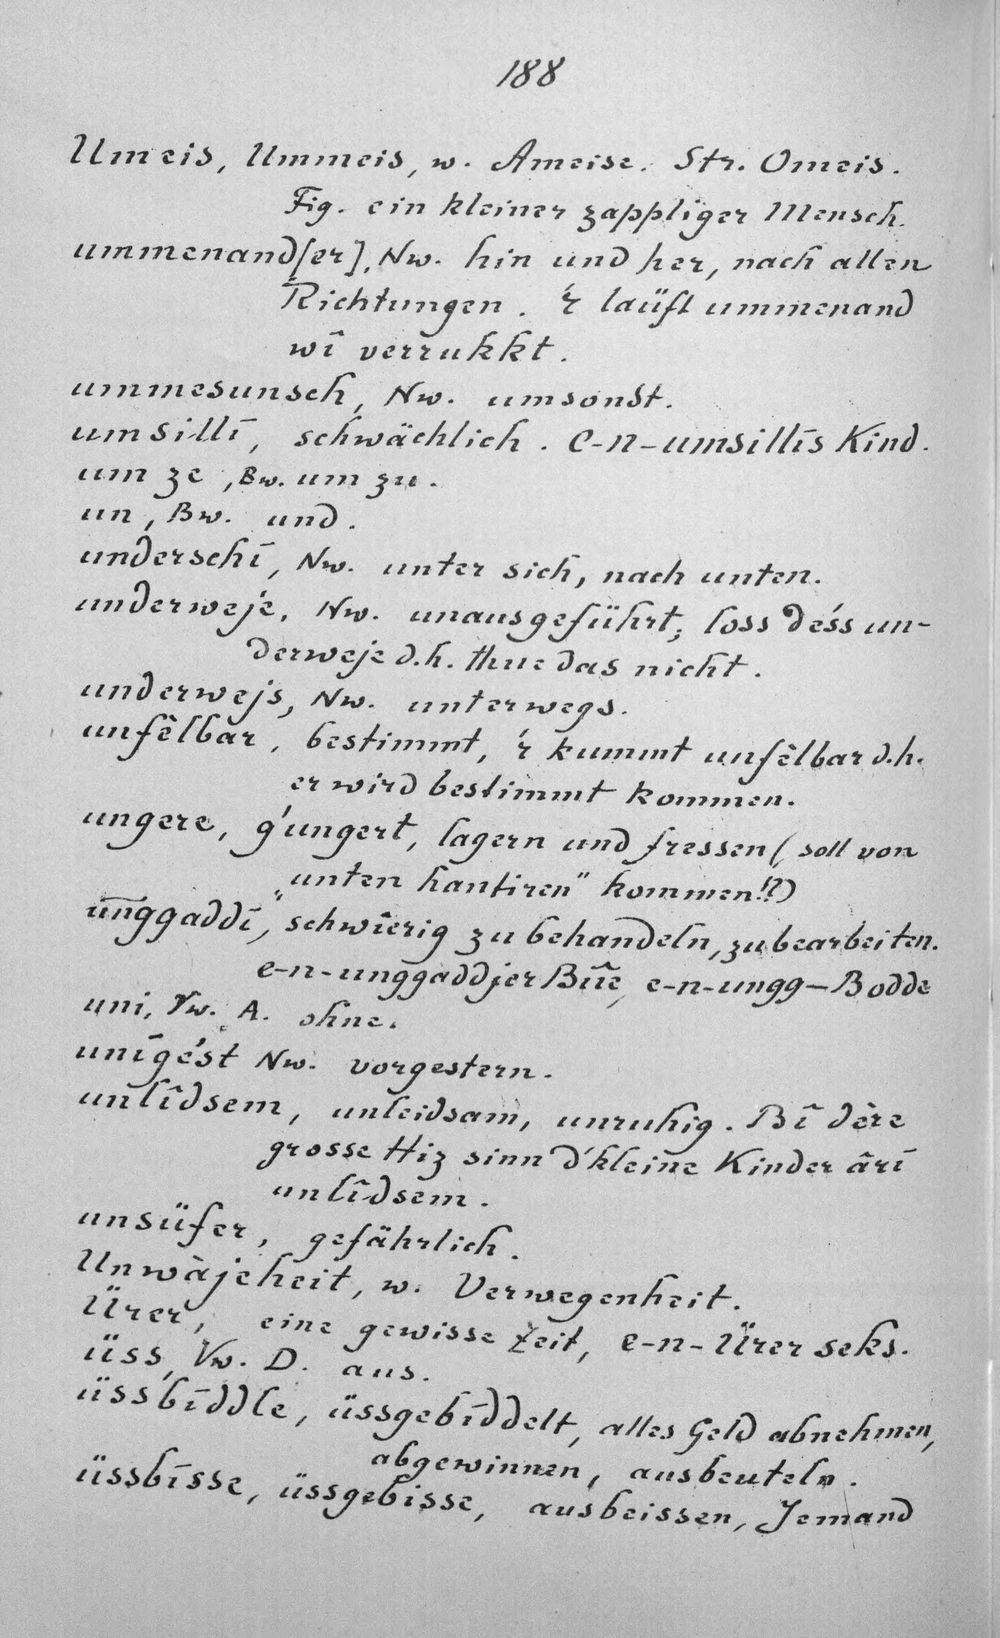 188
Umeis, Ummeis, w. Ameise. Str. Omeis.
Fig. ein kleiner zappliger Mensch.
ummenand[er], Nw. hin und her, nach allen
Richtungen. 'r laüft ummenand
wî verrukkt.
ummesunsch, Nw. umsonst.
umsillī, schwächlich. e-n-umsillīs Kind.
um ze, Bw. um zu.
un, Bw. und.
underschī, Nw. unter sich, nach unten.
underweje, Nw. unausgeführt; loss déss un-
derweje d.h. thue das nicht.
underwejs, Nw. unterwegs.
unfêlbar, bestimmt, 'r kummt unfêlbar d.h.
er wird bestimmt kommen.
ungere, g'ungert, lagern und fressen (soll von
"unten hantiren" kommen!?)
ūnggaddī, schwîerig zu behandeln, zu bearbeiten.
e-n-unggaddjer Bûe, e-n-ungg—Bodde
uni, Vw. A. ohne.
unīgést Nw. vorgestern.
unlîdsem, unleidsam, unruhig. Bî dère
grosse Hiz sinn d'kleine Kinder ârī
unlîdsem.
unsüfer, gefährlich.
Unwàjeheit, w. Verwegenheit.
Ürer, eine gewisse Zeit, e-n-Ürer seks.
üss, Vw. D. aus.
üssbīddle, üssgebīddelt, alles Geld abnehmen,
abgewinnen, ausbeuteln.
üssbīsse, üssgebisse, ausbeissen, Jemand